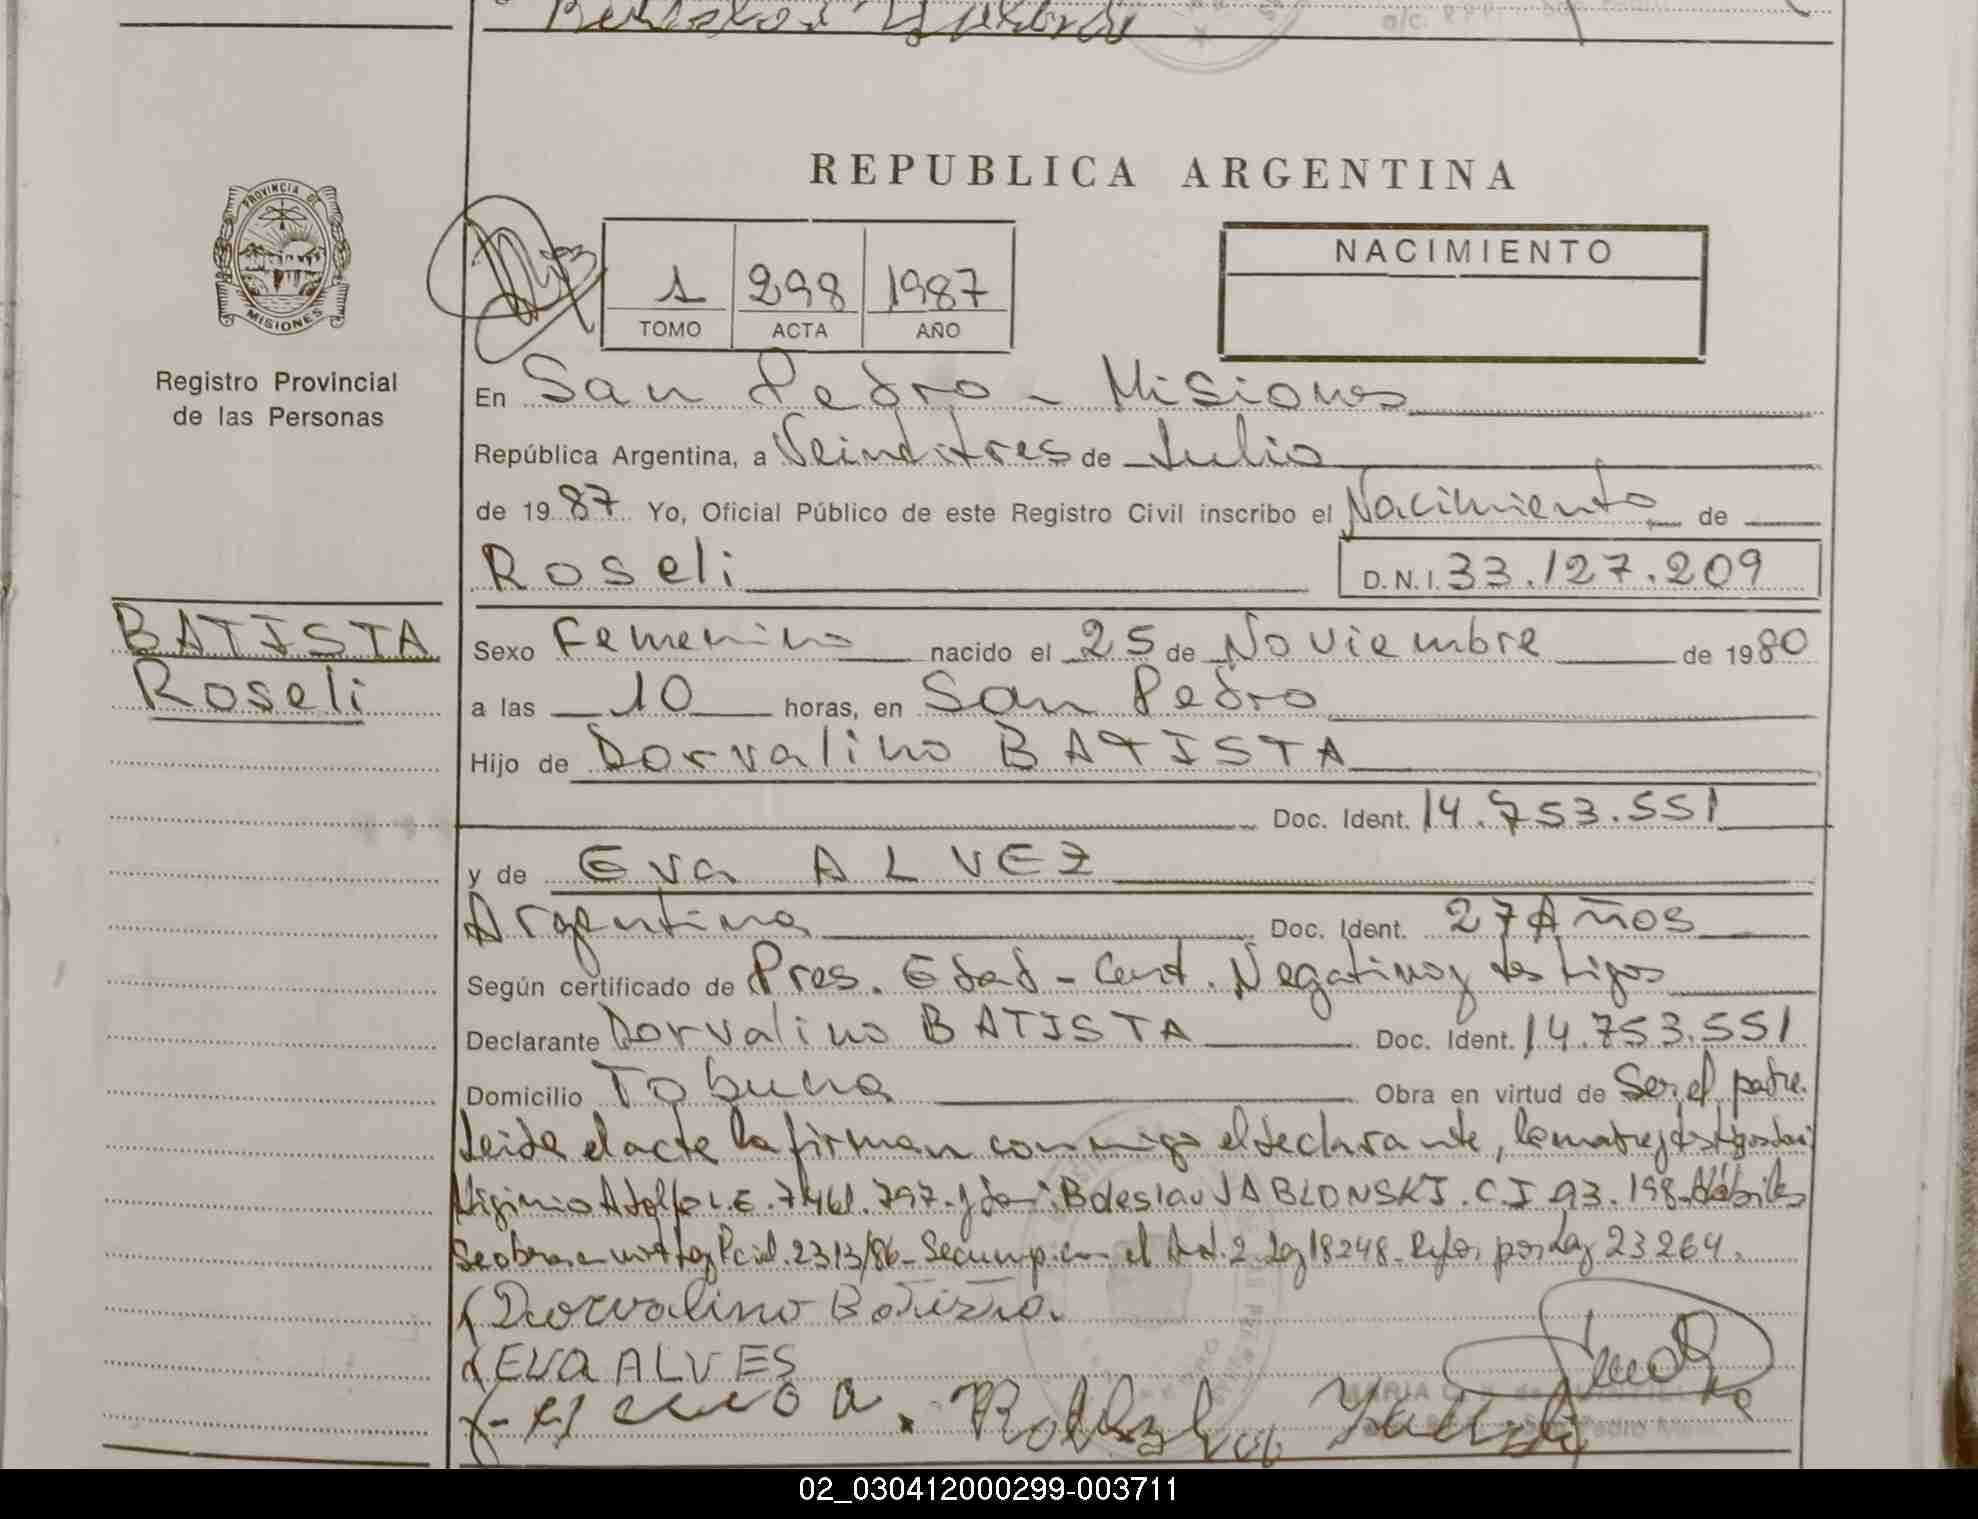 REPUBLICA ARGENTINA
PROVINCIA DE
MISIONES
Registro Provincial
de las Personas
1 298 1987
TOMO ACTA AÑO
NACIMIENTO
En San Pedro - Misiones
República Argentina, a Veintitres de Julio
de 1987 Yo, Oficial Público de este Registro Civil inscribo el Nacimiento de
Roseli D.N.I. 33.127.209
BATISTA
Roseli
Sexo Femenino nacido el 25 de Noviembre de 1980
a las 10 horas, en San Pedro
Hijo de Dorvalino BATISTA
Doc. Ident. 14.753.551
y de Eva ALVEZ
Argentina Doc. Ident. 27 Años
Según certificado de Pres. Edad - Cert. Negativo y testigos
Declarante Dorvalino BATISTA Doc. Ident. 14.753.551
Domicilio Tobuna Obra en virtud de Ser el padre.
Leida el acta la firman conmigo el declarante, la madre y testigos
Higinio Adolfo L.E. 7461.797. y Boleslau JABLONSKI. C.I 93.198. Hábiles
Se obra en virt Ley Pcial. 2313/86 - Se cump. con el Art. 2 Ley 18248 - por Ley 23264.
Dorvalino Batista.
EVA ALVES
02_030412000299-003711